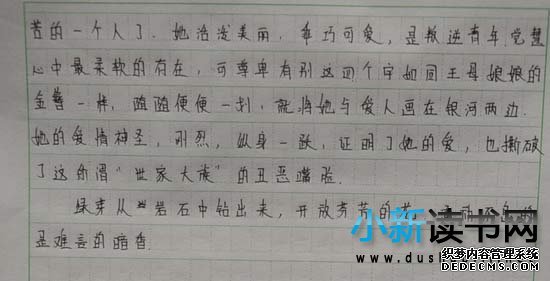 苦的一个人了.她活泼美丽,乖巧可爱,是叛逆青年觉慧
心中最柔软的存在,可尊卑有别这四个字如同王母娘娘的
金簪一样,随随便便一划,就将她与爱人画在银河两边.
她的爱情神圣,刚烈,纵身一跃,证明了她的爱,也撕破
了这所谓"世家大族"的丑恶嘴脸.
绿芽从岩石中钻出来,开放芬芳的花
是难言的暗香
小新读书网
www.dus
织梦内容管理系统
DEDECMS.COM